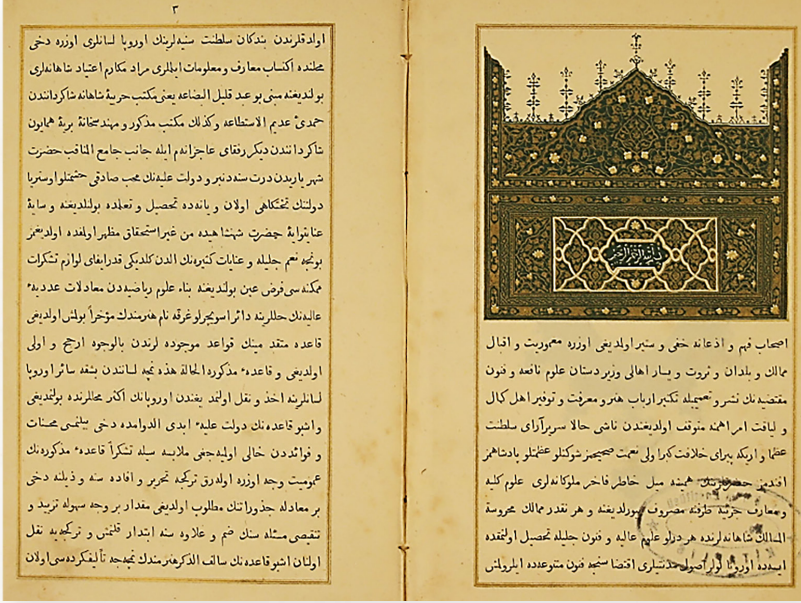 بسم الله الرحمن الرحيم
اصحاب فهم و اذعانه خفی و ستیر اولدیغی اوزره معموریت و اقبال
ممالك و بلدان و ثروت و یسار اهالی وزیردستان علوم نافعه و فنون
مقتضیه نك نشر و تعمیمیله تکثیر ارباب هنر و معرفت و توفیر اهل کمال
و لیاقت امر اهمنه متوقف اولدیغندن ناشی حالا سریرآرای سلطنت
عظما و اریکه پیرای خلافت کبرا ولی نعمت صحیحمز شوکتلو عظمتلو پادشاهمز
افندمز حضرتلرینك همیشه میل خاطر فاخر ملوکانه لری علوم کلیه
و معارف جزئیه طرفنه مصروف بیورلدیغنه و هر نقدر ممالك محروسة
المسالك شاهانه لرنده هر درلو علوم عالیه و فنون جلیله تحصیل اولنمقده
ایسه ده اوروپا اصول مدنیتلری اقتضاسنجه فنون متنوعده ایلرولمش
٣
اولدقلرندن بندکان سلطنت سنیه لرینك اوروپا لسانلری اوزره دخی
محلنده اکتساب معارف و معلومات ایلملری مراد مکارم اعتیاد شاهانه لری
بولندیغنه مبنی بو عبد قلیل البضاعه یعنی مکتب حربیهٔ شاهانه شاکردانندن
حمدیٔ عدیم الاستطاعه و کذلك مکتب مذکور و مهندسخانهٔ بریهٔ همایون
شاکردانندن دیکر رفقای عاجزانه م ایله جانب جامع المناقب حضرت
شهریاریدن درت سنه دنبرو دولت علیه نك محب صادقی حشمتلو اوستریا
دولتنك تختکاهی اولان ویانه ده تحصیل و تعلمده بولندیغنه و سایهٔ
عنایتوایهٔ حضرت شهنشاهیده من غیر استحقاق مظهر اولمقده اولدیغمز
بونجه نعم جلیله و عنایات کثیره نك الدن کلدیکی قدر ایفای لوازم تشکرات
ممکنه سی فرض عین بولندیغنه بناء علوم ریاضیه دن معادلات عددیهٔ
عالیه نك حللرینه دائر اسویچرلو غرفه نام هنرمندك مؤخراً بولمش اولدیغی
قاعده متقدمینك قواعد موجوده لرندن بالوجوه ارجح و اولی
اولدیغی و قاعدهٔ مذکوره الحالة هذه نمچه لسانندن بشقه سائر اوروپا
لسانلرینه اخذ و نقل اولنمدیغندن اوروپانك اکثر محللرنده بولنمدیغی
و اشبو قاعده نك دولت علیهٔ ابدی الدوامده دخی بیلنمسی محسنات
و فوائددن خالی اولمیه جغی ملابسه سیله تشکراً قاعدهٔ مذکوره نك
عمومیت وجه اوزره اولهرق ترکجه تحریر و افاده سنه و ذیلنه دخی
بر معادله جذوراتنك مطلوب اولدیغی مقدار بر وجه سهوله تزیید و
تنقیصی مسئله سنك ضم و علاوه سنه ابتدار قلنمش و ترکجه یه نقل
اولنان اشبو قاعده نك سالف الذکر هنرمندك نمچه جه تألیفکرده سی اولان